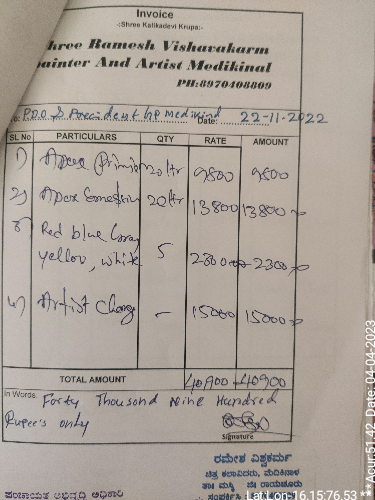 Invoice
-:Shree Kalikadevi Krupa:-
Shree Ramesh Vishavakarm
Painter And Artist Medikinal
PH:8970408809
To: P.D.O & Precident GP Medikinal Date: 22-11-2022
SL No PARTICULARS QTY RATE AMOUNT
1) Apex Primier 20 ltr 9800 9800
2) Apex 20 ltr 13800 13800
3) Red blue Gray
yellow, white 5 2300 2300
4) Artist Charg - 15000 15000
TOTAL AMOUNT 40,900 40900
In Words: Forty Thousand Nine Hundred
Rupee's only
Signature
ರಮೇಶ ವಿಶ್ವಕರ್ಮ
ಚಿತ್ರ ಕಲಾವಿದರು, ಮೆದಿಕಿನಾಳ
ತಾ: ಮಸ್ಕಿ ಜಿ: ರಾಯಚೂರು
ಪಂಚಾಯತ ಅಭಿವೃದ್ಧಿ ಅಧಿಕಾರಿ
Lat Lon:16.15:76.53
**Acur:51.42, Date: 04-04-2023